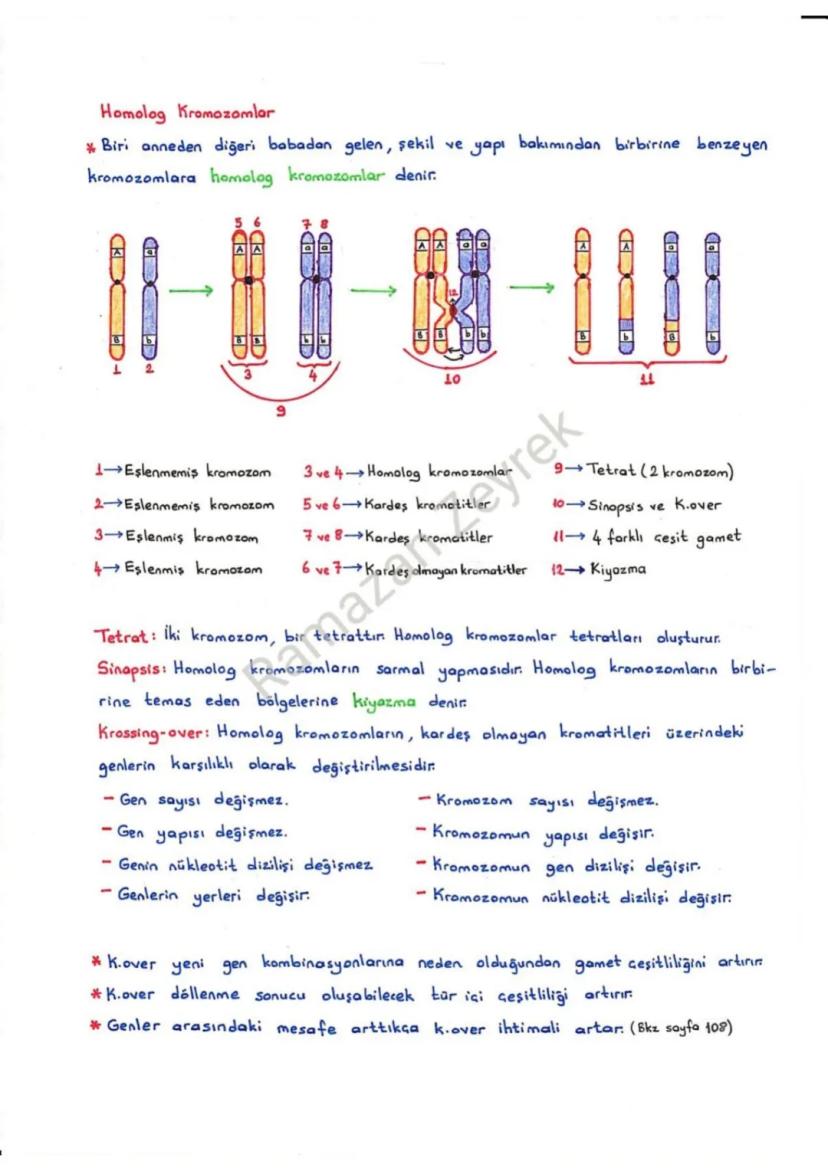 Homolog Kromozomlar
* Biri anneden diğeri babadan gelen, şekil ve yapı bakımından birbirine benzeyen
kromozomlara homolog kromozomlar denir.
5 6 7 8
A a A A a a A A a a A A a a
12
B b B B b b B B b b B b B b
1 2 3 4 10 11
9
1→Eşlenmemiş kromozom 3 ve 4→Homolog kromozomlar 9→Tetrat (2 kromozom)
2→Eşlenmemiş kromozom 5 ve 6→Kardeş kromatitler 10→Sinapsis ve K.over
3→Eşlenmiş kromozom 7 ve 8→Kardeş kromatitler 11→ 4 farklı çeşit gamet
4→ Eşlenmiş kromozom 6 ve 7→Kardeş olmayan kromatitler 12→ Kiyazma
Ramazan Zeyrek
Tetrat: İki kromozom, bir tetrattır. Homolog kromozomlar tetratları oluşturur.
Sinapsis: Homolog kromozomların sarmal yapmasıdır. Homolog kromozomların birbi-
rine temas eden bölgelerine kiyazma denir.
Krossing-over: Homolog kromozomların, kardeş olmayan kromatitleri üzerindeki
genlerin karşılıklı olarak değiştirilmesidir.
- Gen sayısı değişmez. - Kromozom sayısı değişmez.
- Gen yapısı değişmez. - Kromozomun yapısı değişir.
- Genin nükleotit dizilişi değişmez - Kromozomun gen dizilişi değişir.
- Genlerin yerleri değişir. - Kromozomun nükleotit dizilişi değişir.
* K.over yeni gen kombinasyonlarına neden olduğundan gamet çeşitliliğini artırır.
* K.over döllenme sonucu oluşabilecek tür içi çeşitliliği artırır.
* Genler arasındaki mesafe arttıkça k.over ihtimali artar. (Bkz sayfa 108)